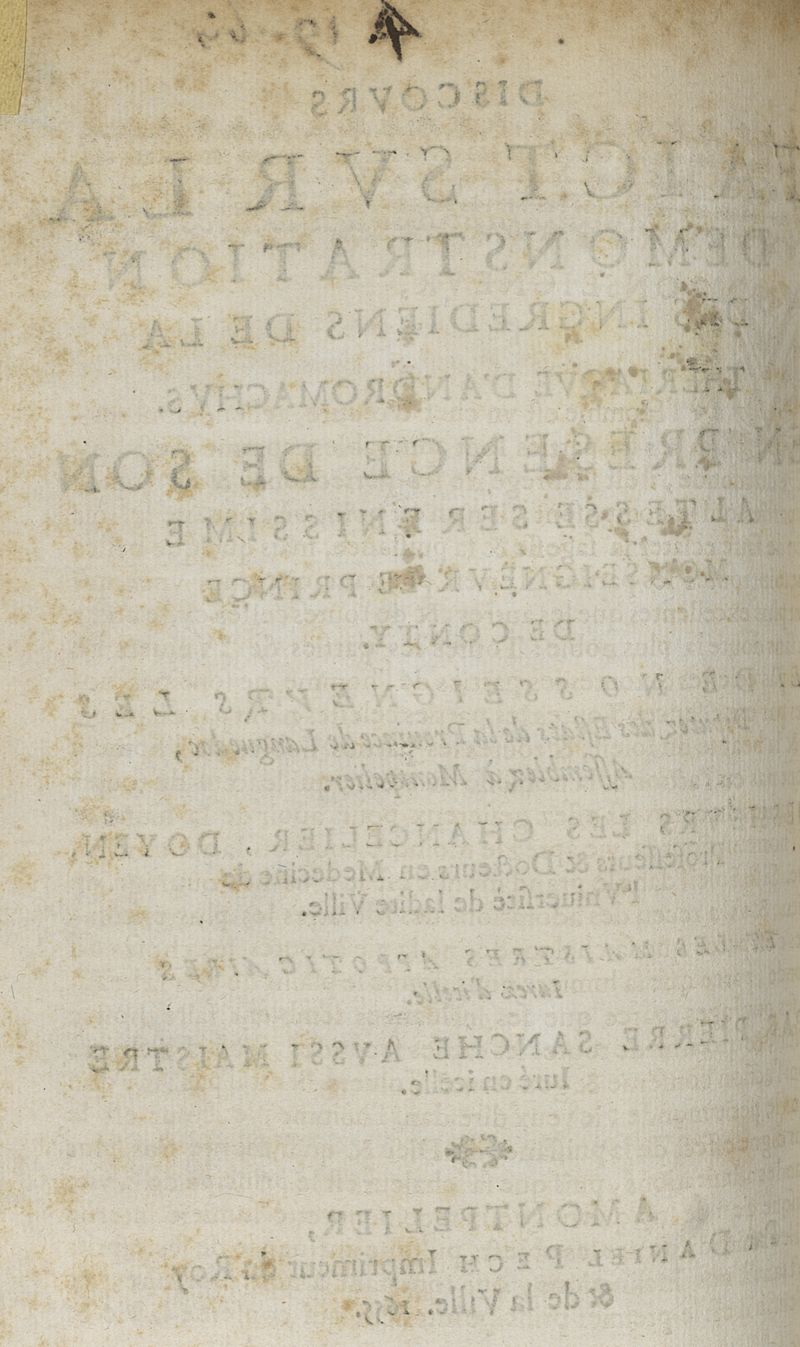 DISCOVRS
FAICT SVR LA
DEMONSTRATION
DES INGREDIENS DE LA
THERIAQVE D'ANDROMACHVS.
EN PRESENCE DE SON
ALTESSE SERENISSIME
MONSEIGNEVR LE PRINCE
DE CONTY.
DE MOSSEIGNEVRS LES
des Estats de la Prouince de Languedoc,
Assemblez à Montpellier.
LES CHANCELIER, DOYEN,
& Docteurs en Medecine de
l'Vniuersité de ladite Ville.
LES MAISTRES APOTICAIRES
Iurez d'icelle.
PIERRE SANCHE AVSSI MAISTRE
Iuré en icelle.
A MONTPELIER,
DANIEL PECH Imprimeur du Roy
& de la Ville.